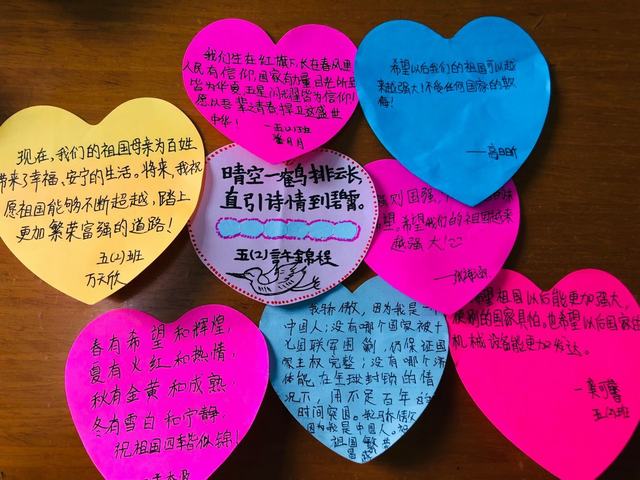 我们生在红旗下,长在春风里
人民有信仰,国家有力量,目光所至
皆为华夏,五星闪耀皆为信仰!
愿以吾辈之青春,捍卫这盛世
中华!
—五(2)班
月月
希望以后我们的祖国可以越
来越强大!不怕任何国家的欺
侮!
——高日昕
现在,我们的祖国母亲为百姓
带来了幸福、安宁的生活。将来,我祝
愿祖国能够不断超越,踏上
更加繁荣富强的道路!
五(2)班
万天欣
晴空一鹤排云长,
直引诗情到碧霄。
五(2)许锦程
则国强,
望。希望我们的祖国越来
越强大!
春有希望和辉煌,
夏有火红和热情,
秋有金黄和成熟,
冬有雪白和宁静,
祝祖国四季皆似锦!
我骄傲,因为我是一
中国人;没有哪个国家被十
七国联军围剿,仍保证国
家主权完整;没有哪个济
体能在全球封锁的情
况下,用不足百年的
时间突围。我骄傲
因为我是中国人。祝
祖国繁荣
昌
望祖国以后能更加强大,
使别的国家具怕。也希望以后国家的
机械设备能更加发达。
五(2)班